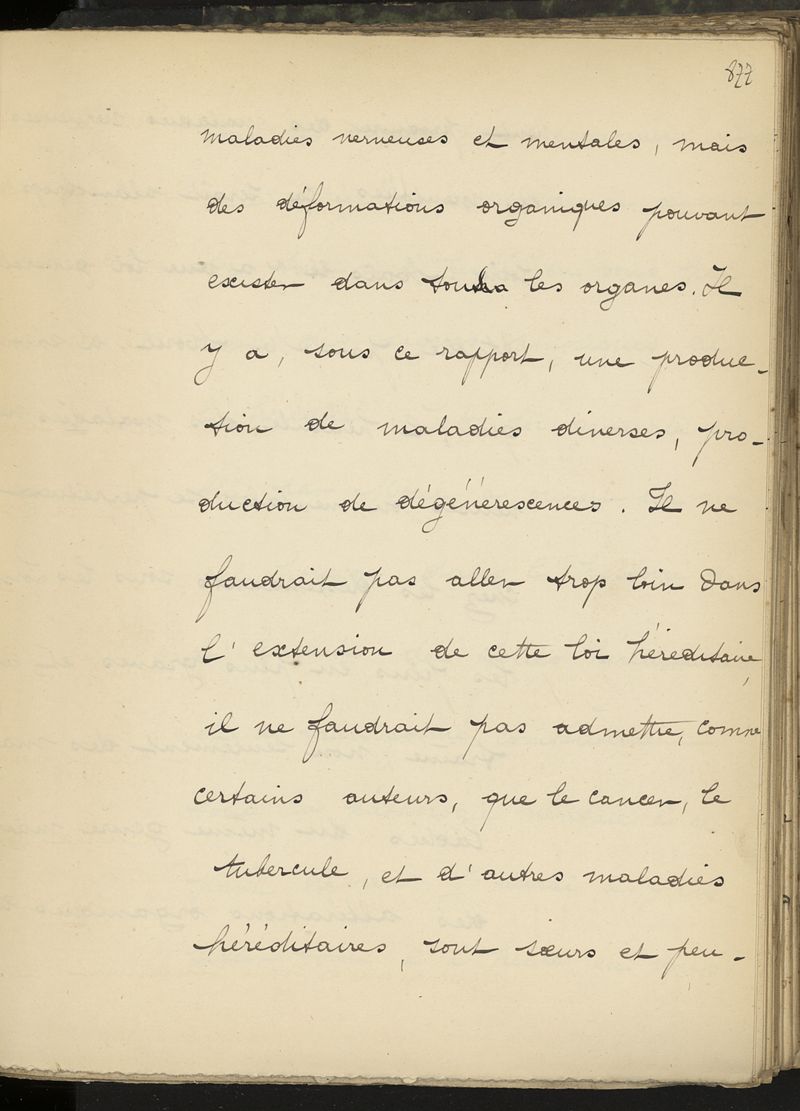 877
maladies nerveuses et mentales, mais
des déformations organiques pouvant
exister dans tous les organes. Il
y a, sous ce rapport, une produc-
tion de maladies diverses, pro-
duction de dégénérescences. Il ne
faudrait pas aller trop loin dans
l'extension de cette loi héréditaire,
il ne faudrait pas admettre, comme
certains auteurs, que le cancer, le
tubercule, et d'autres maladies
héréditaires, sont sœurs et peu-